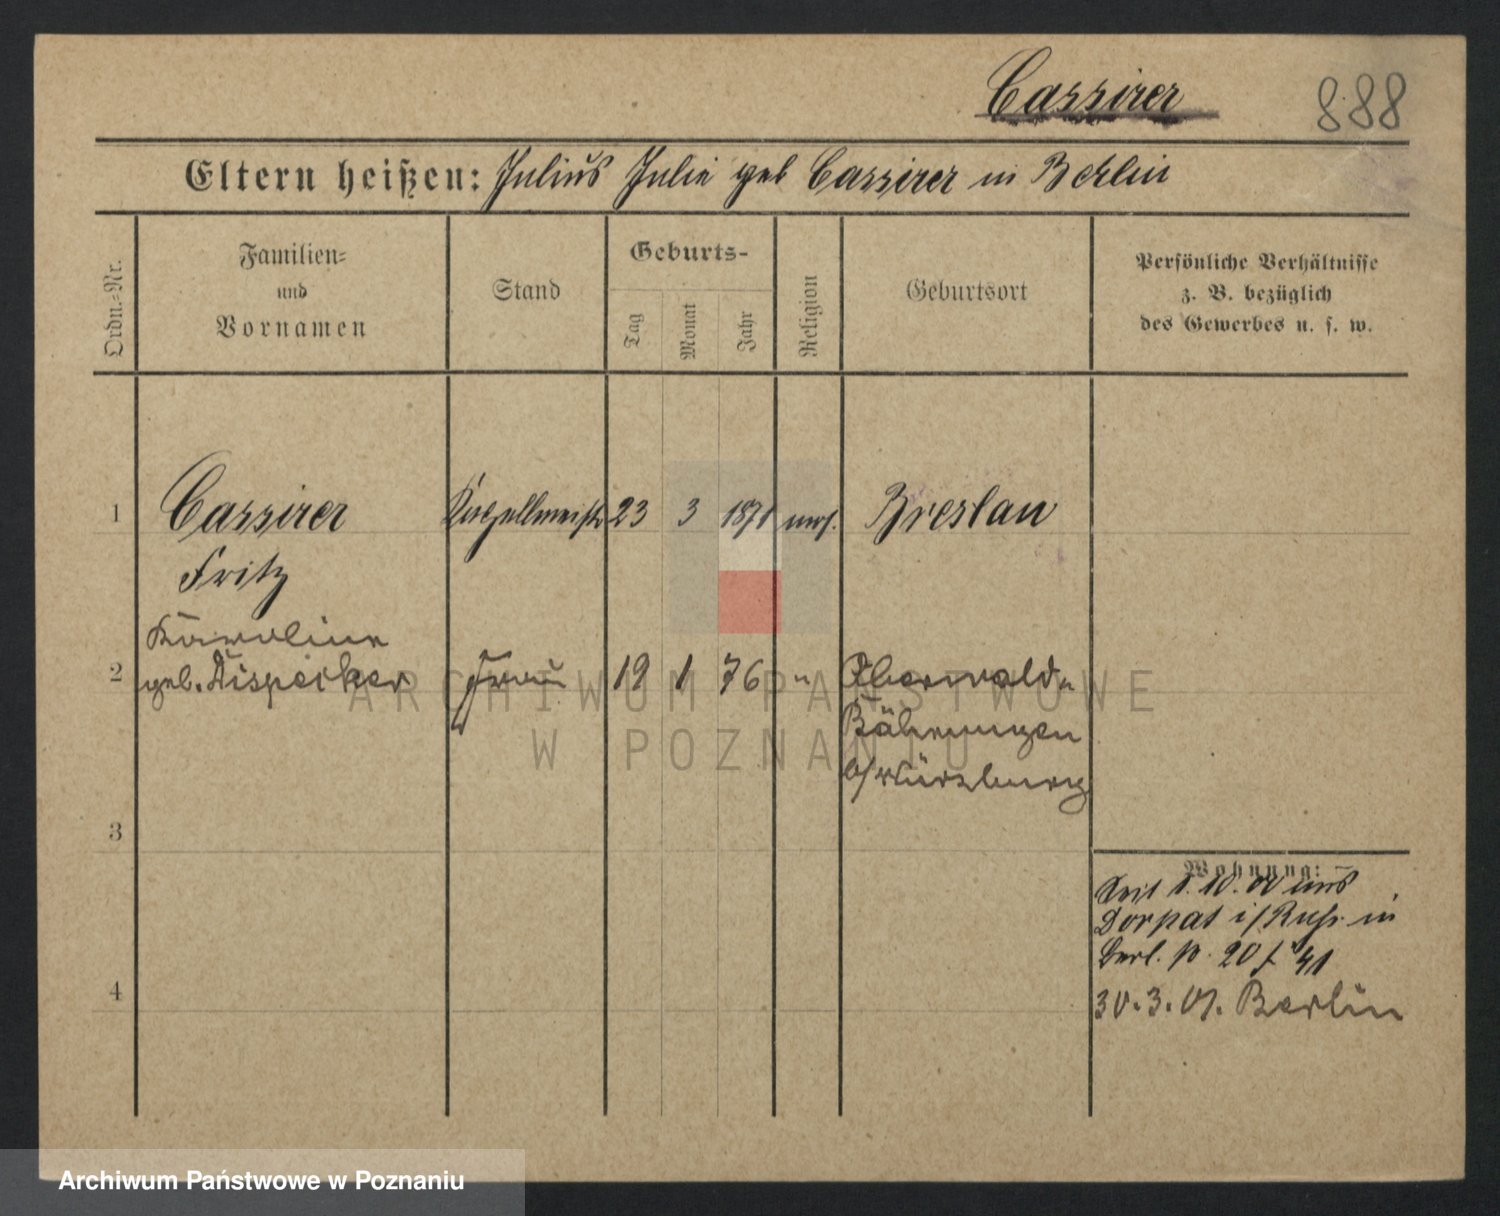 Cassirer
888
Eltern heißen: Julius Julie geb Cassirer in Berlin
Ordn.-Nr.
Familien-
und
Vornamen
Stand
Geburts-
Tag
Monat
Jahr
Religion
Geburtsort
Persönliche Verhältnisse
z. B. bezüglich
des Gewerbes u. s. w.
1 Cassirer Kapellmeister 23 3 1871 mos. Breslau
Fritz
Karoline
2 geb. Dispecker Frau 19 1 76 "
b/Würzburg
3
Wohnung:
Seit 1. 10. 00 aus
Dorpat i/Russ. in
Berl.
4
30. 3. 01. Berlin
ARCHIWUM PAŃSTWOWE
W POZNANIU
Archiwum Państwowe w Poznaniu